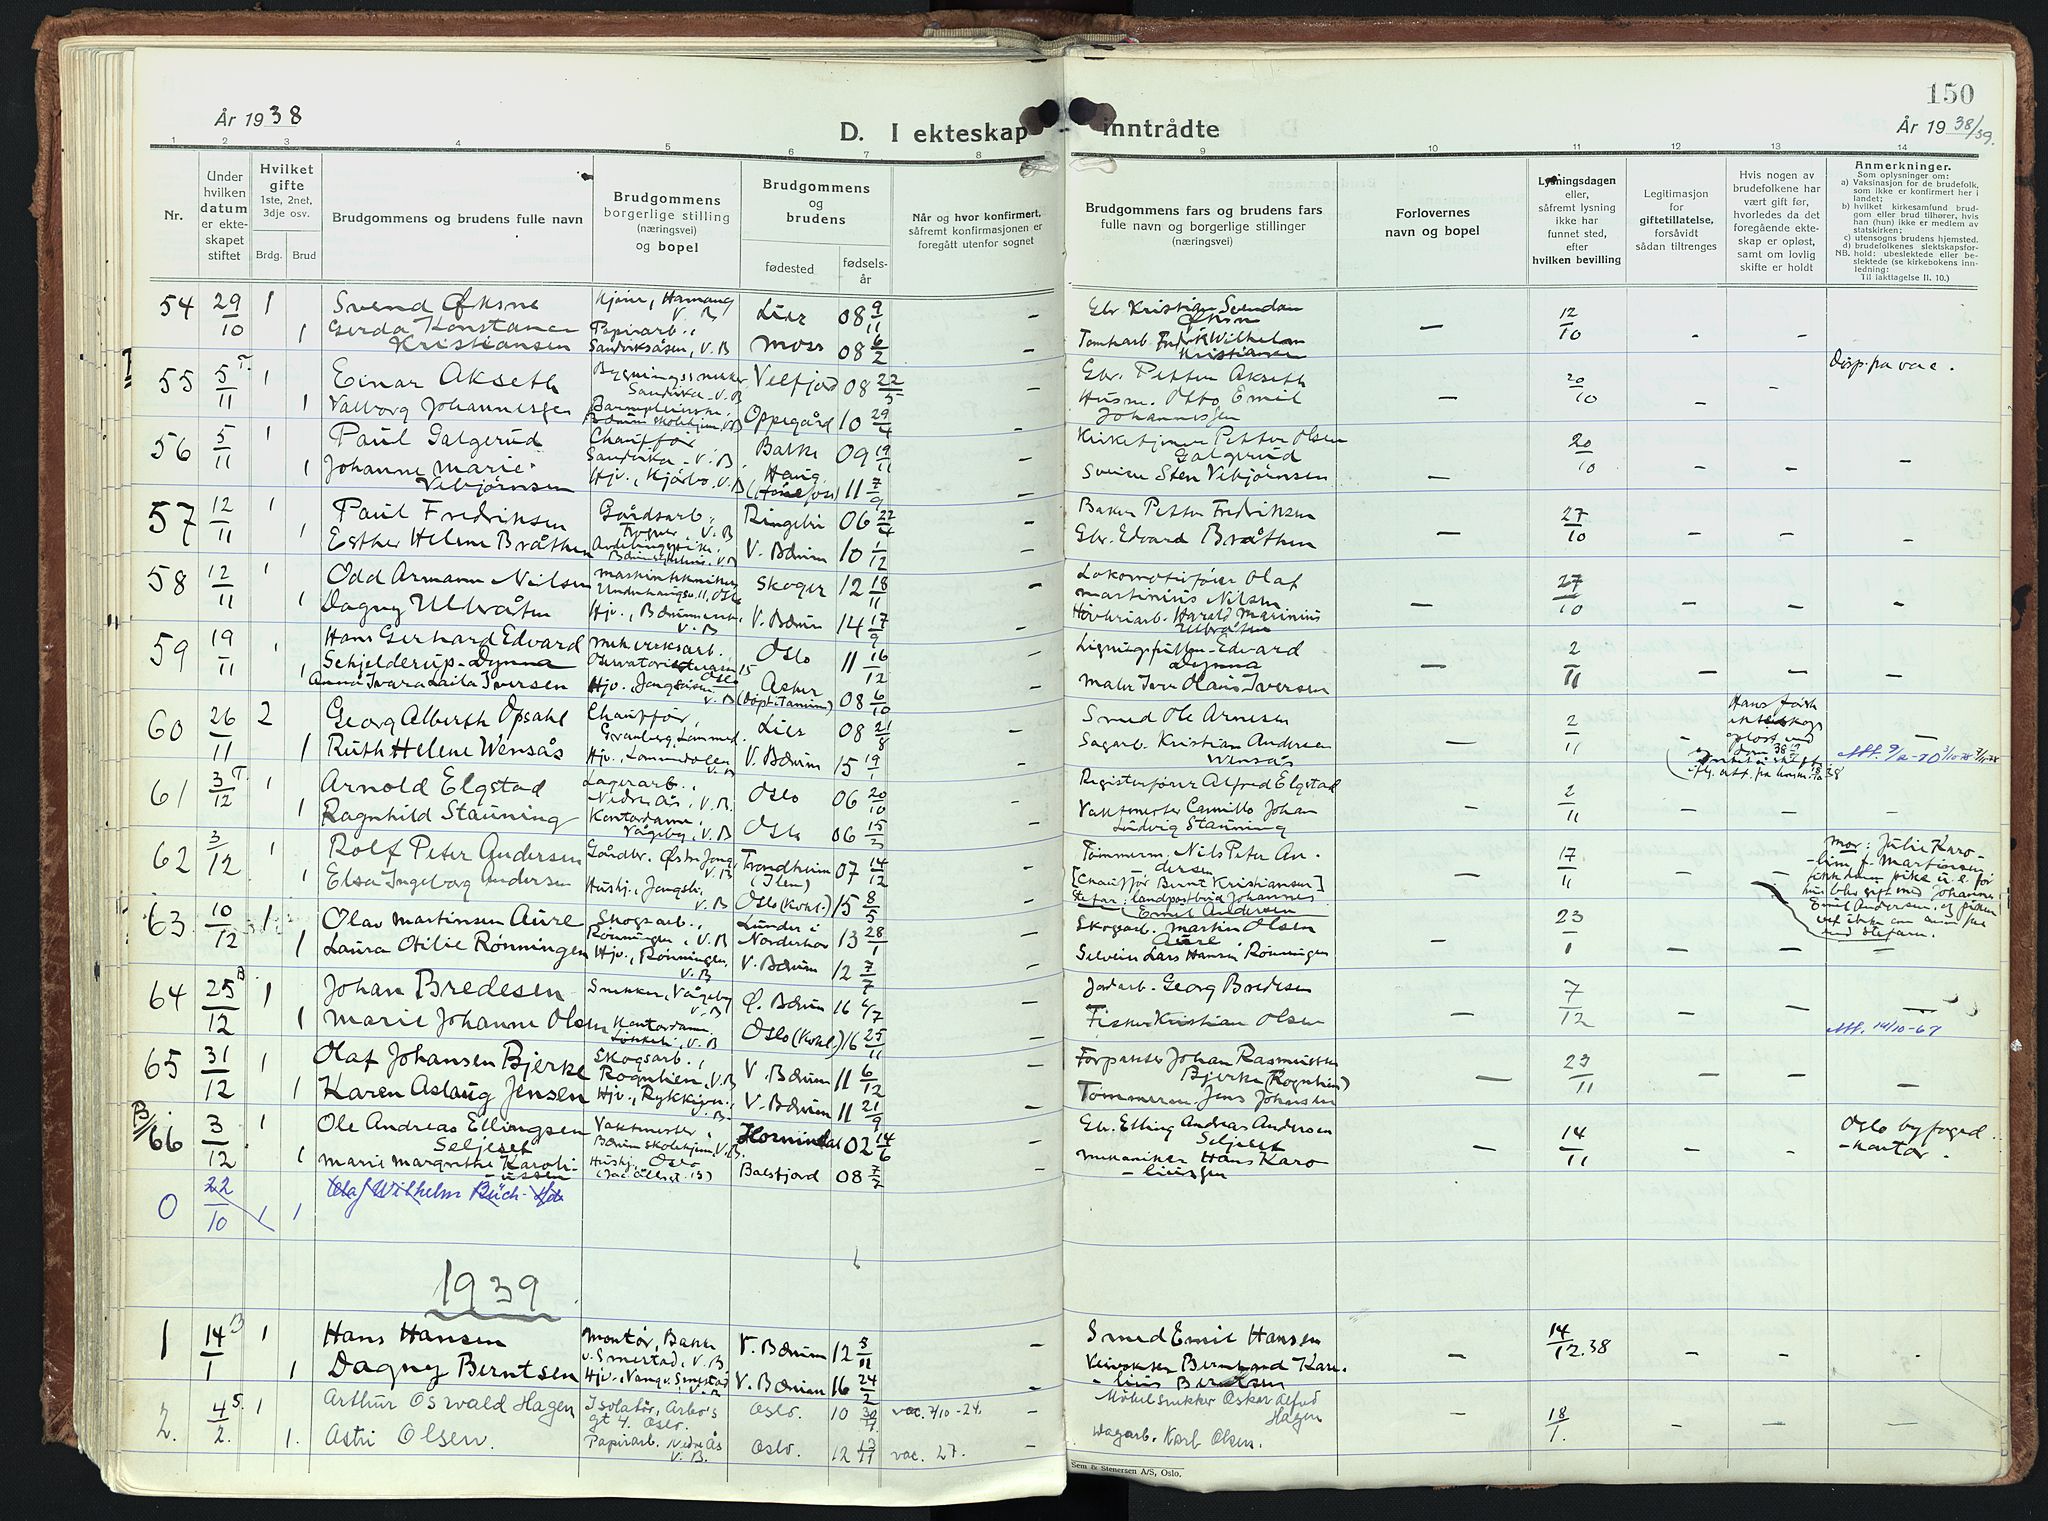 År 1938
D. I ekteskap inntrådte
150
År 1938/39.
1 2 3 4 5 6 7 8 9 10 11 12 13 14
Nr.
Under hvilken datum er ekteskapet stiftet
Hvilket gifte 1ste, 2net, 3dje osv.
Brdg. Brud
Brudgommens og brudens fulle navn
Brudgommens borgerlige stilling (næringsvei) og bopel
Brudgommens og brudens
fødested fødsels-år
Når og hvor konfirmert, såfremt konfirmasjonen er foregått utenfor sognet
Brudgommens fars og brudens fars fulle navn og borgerlige stillinger (næringsvei)
Forlovernes navn og bopel
Lysningsdagen eller, såfremt lysning ikke har funnet sted, efter hvilken bevilling
Legitimasjon for giftetillatelse, forsåvidt sådan tiltrenges
Hvis nogen av brudefolkene har vært gift før, hvorledes da det foregående ekteskap er opløst, samt om lovlig skifte er holdt
Anmerkninger.
Som oplysninger om:
a) Vaksinasjon for de brudefolk, som ikke er konfirmert her i landet;
b) hvilket kirkesamfund brudgom eller brud tilhører, hvis han (hun) ikke er medlem av statskirken;
c) utensogns brudens hjemsted.
d) brudefolkenes slektskapsforhold: ubeslektede eller beslektede (se kirkebokens innledning:
NB. Til iakttagelse II. 10.)
54 29/10 1 Svend Øksne Lier 08 9/11 Gbr. Kristian Svendsen Øksne 12/10
1 Gerda Konstance Kristiansen Papirarb., Sandviksåsen, V.B Moss 08 6/2 Tomtearb. Fredrik Wilhelm Kristiansen
55 5/11 T. 1 Einar Akseth Bygningssnekker Sandvika V.B Velfjord 08 22/5 Gbr. Petter Akseth 20/10 Disp. fra vac.
1 Valborg Johannessen Oppegård 10 29/4 Husm. Otto Emil Johannessen
56 5/11 1 Paul Galgerud Chauffør Sandvika V.B. Balke 09 19/11 Kirketjener Petter Olsen Galgerud 20/10
1 Johanne Marie Vebjørnsen Hjv., Kjørbo, V.B Haug (Hønefoss) 11 7/9 Sveiser Sten Vebjørnsen
57 12/11 1 Paul Fredriksen Gårdsarb. V.B Ringebu 06 22/4 Baker Petter Fredriksen 27/10
1 Esther Helene Bråthen Avdelingspike, V.B V. Bærum 10 1/12 Gbr. Edvard Bråthen
58 12/11 1 Odd Armann Nilsen Maskintekniker Skoger 12 18/11 Lokomotivfører Olaf Martinius Nilsen 27/10
1 Dagny Ulbråten Hjv., Bærumsverk, V.B V. Bærum 14 17/9 Høvleriarb. Harald Marinius Ulbråten
59 19/11 1 Hans Gerhard Edvard Schjelderup-Dynna Mek.verksarb. Observatoriegaten 15 Oslo Oslo 11 16/12 Ligningsfullm. Edvard Dynna 2/11
1 Anna Ivara Laila Iversen Hjv., Jongsåsen V.B Asker (døpt Tanum) 08 6/10 Maler Iver Olaus Iversen
60 26/11 2 Georg Alberth Opsahl Chauffør, Granberg, Lommed. Lier 08 21/8 Smed Ole Arnesen 2/11
1 Ruth Helene Wensås Hjv., Lommedalen V.B V. Bærum 15 19/1 Sagarb. Kristian Andersen Wensås
61 3/12 T. 1 Arnold Elgstad Lagerarb. Nedre Ås, V.B. Oslo 06 20/10 Registerfører Alfred Elgstad 2/11
1 Ragnhild Stauning Kontordame, Vågeby, V.B Oslo 06 15/3 Vaktmester Camillo Johan Ludvig Stauning
62 3/12 1 Rolf Peter Andersen Gårdbr. Østre Jong V.B Trondheim (Ilen) 07 14/12 Tømmerm. Nils Peter Andersen 17/11
1 Elsa Ingeborg Andersen Hushj., Jongsbr. V.B Oslo (Kvhl.) 15 8/5 [Chauffør Bernt Kristiansen] Stefar: landpostbud Johannes Emil Andersen
mor: Julie Karoline f. Martinsen
63 10/12 1 Olav Martinsen Aure Skogsarb., Rønningen, V.B Lunder i Norderhov 13 28/1 Skogarb. Martin Olsen Aure 23/1
1 Laura Otilie Rønningen Hjv., Rønningen, V.B V. Bærum 12 7/7 Selveier Lars Hansen Rønningen
64 25/12 B 1 Johan Bredesen Snekker, Vågeby V.B Ø. Bærum 16 4/7 Jordarb. Georg Bredesen 7/12
1 Marie Johanne Olsen Kontordame Løkkeb., V.B Oslo (Kvhl.) 16 25/11 Fisker Kristian Olsen Att. 14/10-67
65 31/12 1 Olaf Johansen Bjerke Skogsarb., Rognlien, V.B V. Bærum 11 6/12 Forpakter Johan Rasmussen Bjerke (Rognlien) 23/11
1 Karen Aslaug Jensen Hjv., Rykkinn, V.B. V. Bærum 11 21/9 Tømmerm. Jens Johansen
B/66 3/12 1 Ole Andreas Ellingsen Seljeset Vaktmester Bærum skolehjem, V.B. Hornindal 02 14/6 Gbr. Elling Andreas Andersen Seljeset 14/11 Oslo byfogedkontor.
1 Marie Margrethe Karoliussen Hushj., Oslo Balsfjord 08 7/7 Mekaniker Hans Karoliussen
0 22/10 1 1 Olaf Wilhelm Büch-
1939
1 14/1 B 1 Hans Hansen Montør, Bakke v. Smestad, V.B V. Bærum 12 5/11 Smed Emil Hansen 14/12.38
1 Dagny Berntsen Hjv., Vang v. Smestad V.B V. Bærum 16 24/2 Veivokter Bernhard Karelius Berntsen
2. 4/2. S. 1 Arthur Oswald Hagen Isolatør, Arbo's gt 4. Oslo. Oslo. 10 30/9 vac. 7/10-24. Møbelsnekker Oskar Alfred Hagen 18/1.
1. Astri Olsen. Papirarb. Nedre Ås V.B. Oslo. 12 13/11 vac. 27. Dagarb. Karl Olsen.
Sem & Stenersen A/S, Oslo.